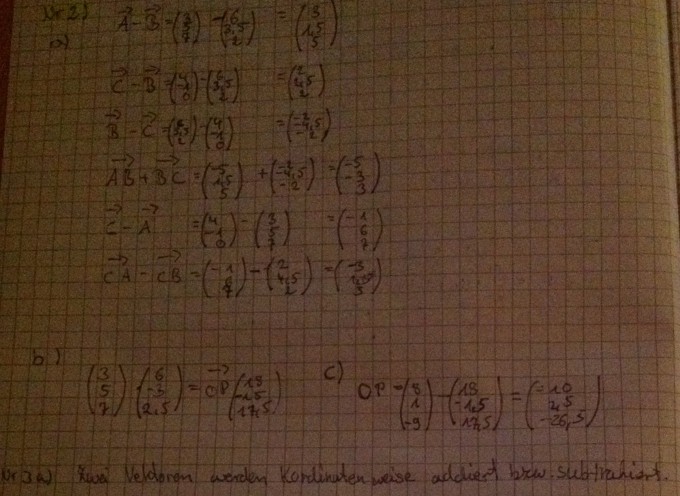 Nr 2)
a) A - B = (3 5 7) - (6 3,5 2) = (3 1,5 5)
C - B = (4 -1 0) - (6 3,5 2) = (2 4,5 2)
B - C = (6 3,5 2) - (4 -1 0) = (-2 -4,5 -2)
AB + BC = (-5 1,5 5) + (-2 -4,5 -2) = (-5 -3 3)
C - A = (4 -1 0) - (3 5 7) = (-1 6 7)
CA - CB = (-1 6 7) - (2 4,5 2) = (-3 1,5 5)
b) (3 5 7) (6 -3 2,5) = OP (18 -1,5 17,5)
c) OP = (8 1 -9) - (18 -1,5 17,5) = (-10 2,5 -26,5)
Nr 3 a) Zwei Vektoren werden Kordinatenweise addiert bzw. subtrahiert.